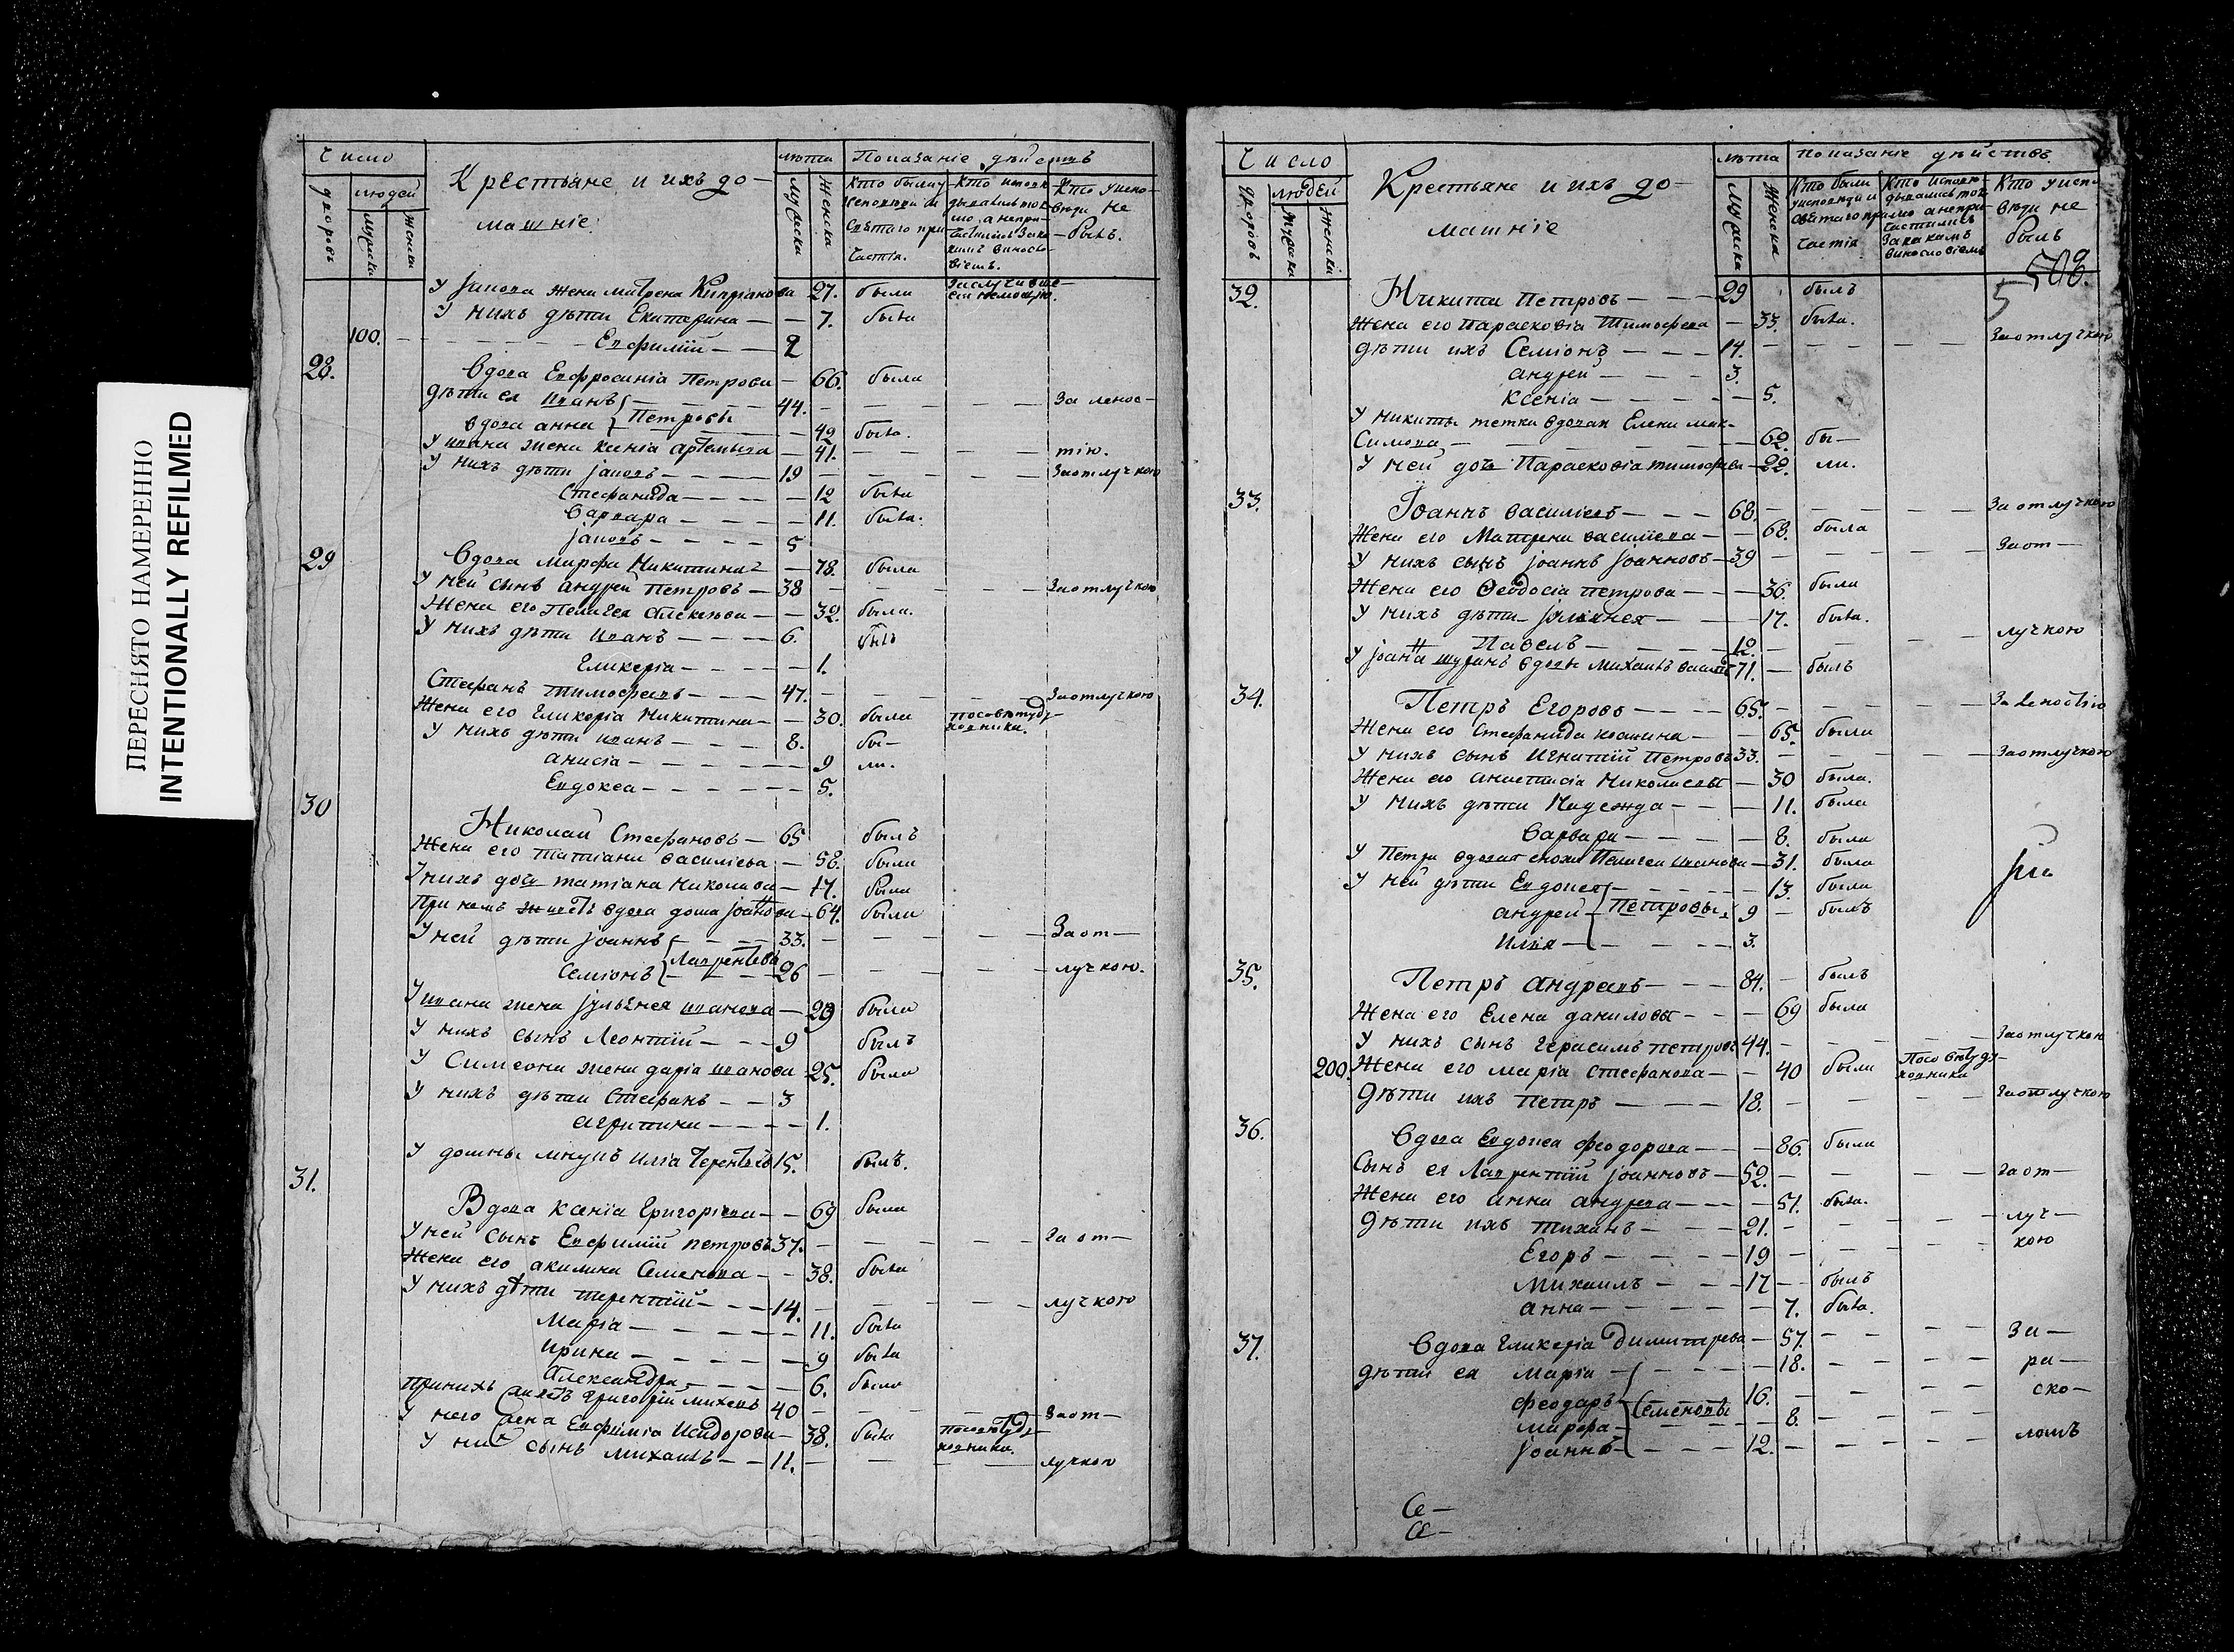 ПЕРЕСНЯТО НАМЕРЕННО
INTENTIONALLY REFILMED
Число
дворовъ
людей
мужеска
женска
Крестьяне и ихъ до-
машніе
лѣта
мужеска
женска
Показаніе дѣйствъ
Кто были у исповѣди и святаго причастія.
Кто исповѣдывались токмо а непричастились и за какимъ виносло-віемъ.
Кто у исповѣди не былъ.
У жена матрена Кипріанова 27. была
У нихъ дѣти Екатерина — 7. была
100. Евфимій — 2
28. Вдова Евфросинія Петрова — 66. была
дѣти ея иванъ — 44. — За ленос-
вдова анна Петровы — 42 была.
У ивана жена ксенія — 41. — тію.
У нихъ дѣти — 19 — За отлучкою
Стефанида — 12 была
варвара — 11. была.
— 5
29 Вдова Марфа Никитина — 78. была
У ней сынъ андрей Петровъ — 38 — За отлучкою
Жена его Пелагея алексѣева — 32. была.
У нихъ дѣти иванъ — 6. былъ
Гликерія — 1.
Стефанъ тимофеевъ — 47. — За отлучкою
Жена его Гликерія Никитина — 30. была по совѣту духовника.
У нихъ дѣти иванъ — 8. бы-
анисія — 9 ли.
Евдокеа — 5.
30 Николай Стефановъ — 65 былъ
Жена его татіана василіева — 58. была
У нихъ дочь татіана Николаева — 17. была
При немъ вдова — 64. была
У ней дѣти іоаннъ — 33. — За от-
Семіонъ Лаврентьевы — 26 — лучкою.
У ивана жена іульянея иванова — 29 была
У нихъ сынъ Леонтій — 9 былъ
У Симеона жена дарія иванова 25. была
У нихъ дѣти Стефанъ — 3
агрипина — 1.
У внукъ илія Терентьевъ 15. былъ.
31. Вдова ксенія Григоріева — 69 была
У ней сынъ Евфимій петровъ 37. — За от-
Жена его акилина Семенова — 38. была
У нихъ дѣти терентій — 14. — лучкою
Марія — 11. была
ирина — 9 была
Александра — 6. была
При нихъ зять григорій 40 — За от-
У него жена Евфимія Исидорова — 38. была по совѣту духовника.
У них сынъ Михаилъ — 11. — лучкою
Число
дворовъ
людей
мужеска
женска
Крестьяне и ихъ до-
машніе
лѣта
мужеска
женска
показаніе дѣйствъ
Кто были у исповѣди и святаго причастія
Кто исповѣдывались токмо а непричастились за какимъ виносло-віемъ
Кто у исповѣди не былъ
508.
32. Никита Петровъ — 29 былъ
Жена его Парасковіа Тимофева — 33. была.
дѣти ихъ Семіонъ — 14. — За отлучкою
андрей — 3.
Ксенія — 5.
У никиты тетка вдовая Елена мак-
симова — 62. бы-
У ней дочь Параскавіа тимофева — 22. ли.
33. Іоаннъ василіевъ — 68. — За отлучкою
Жена его Матрена василіева — 68. была
У нихъ сынъ іоаннъ іоанновъ — 39 — За от-
Жена его Феодосіа петрова — 36. была
У нихъ дѣти — 17. была.
Павелъ — 12. — лучкою
У іоанна шуринъ вдовъ михаилъ 71. — былъ
34. Петръ Егоровъ — 65. — За леностію
Жена его Стефанида — 65. была
У нихъ сынъ Игнатій Петровъ 33. — За отлучкою
Жена его анастасіа Николаева — 30 была.
У нихъ дѣти Надежда — 11. была
варвара — 8. была
У Петра вдовая сноха Пелагея иванова — 31. была
У ней дѣти Евдокея — 13. была
андрей Петровы 9 — былъ
илія — 3.
35. Петръ андреевъ — 84. — былъ
Жена его Елена данилова — 69 была
У нихъ сынъ герасимъ петровъ 44. — За отлучкою
200. Жена его маріа стефанова — 40 была По совѣту духовника
дѣти ихъ петръ — 18. — За отлучкою
36. Вдова Евдокеа феодорова — 86. была
Сынъ ея Лаврентій іоанновъ — 52. — За от-
Жена его анна андреева — 51. была.
дѣти ихъ тиханъ — 21. — луч-
Егоръ — 19 — кою
михаилъ — 17 — былъ
анна — 7. была.
37. Вдова гликерія димитрева — 57. — За-
дѣти ея маріа — 18. — ра-
феодаръ Семеновы 16. — ско-
марфа — 8. —
іоаннъ — 12. — ломъ
Се-
Се-